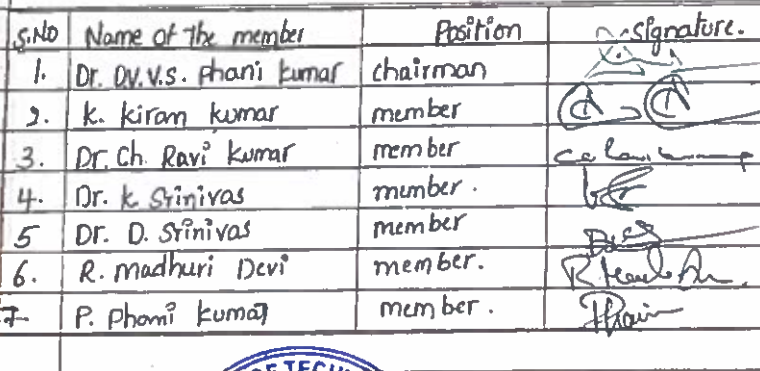 S.No Name of the member Position signature.
1. Dr. D.V.V.S. Phani kumar chairman
2. K. kiram kumar member
3. Dr. Ch. Ravi kumar member
4. Dr. k Srinivas member.
5 Dr. D. Srinivas member
6. R. madhuri Devi member.
7. P. Phami kumar member.
OF TECH